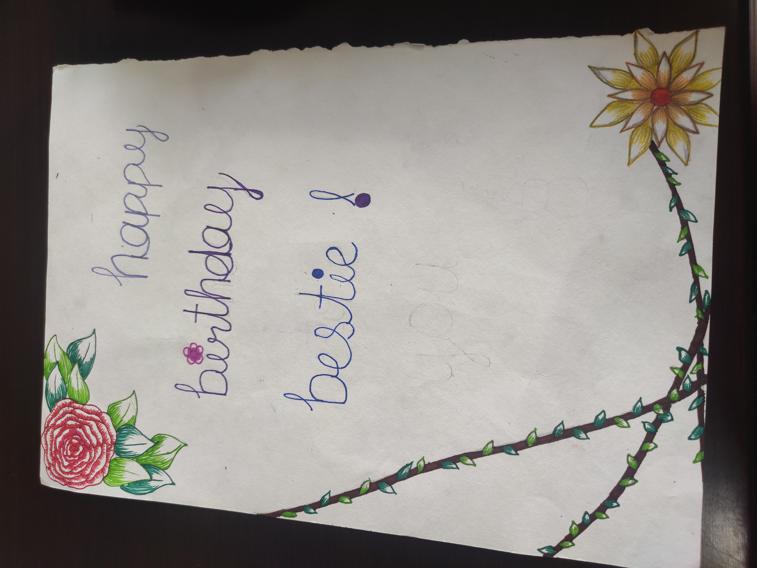 happy
birthday
bestie !
you